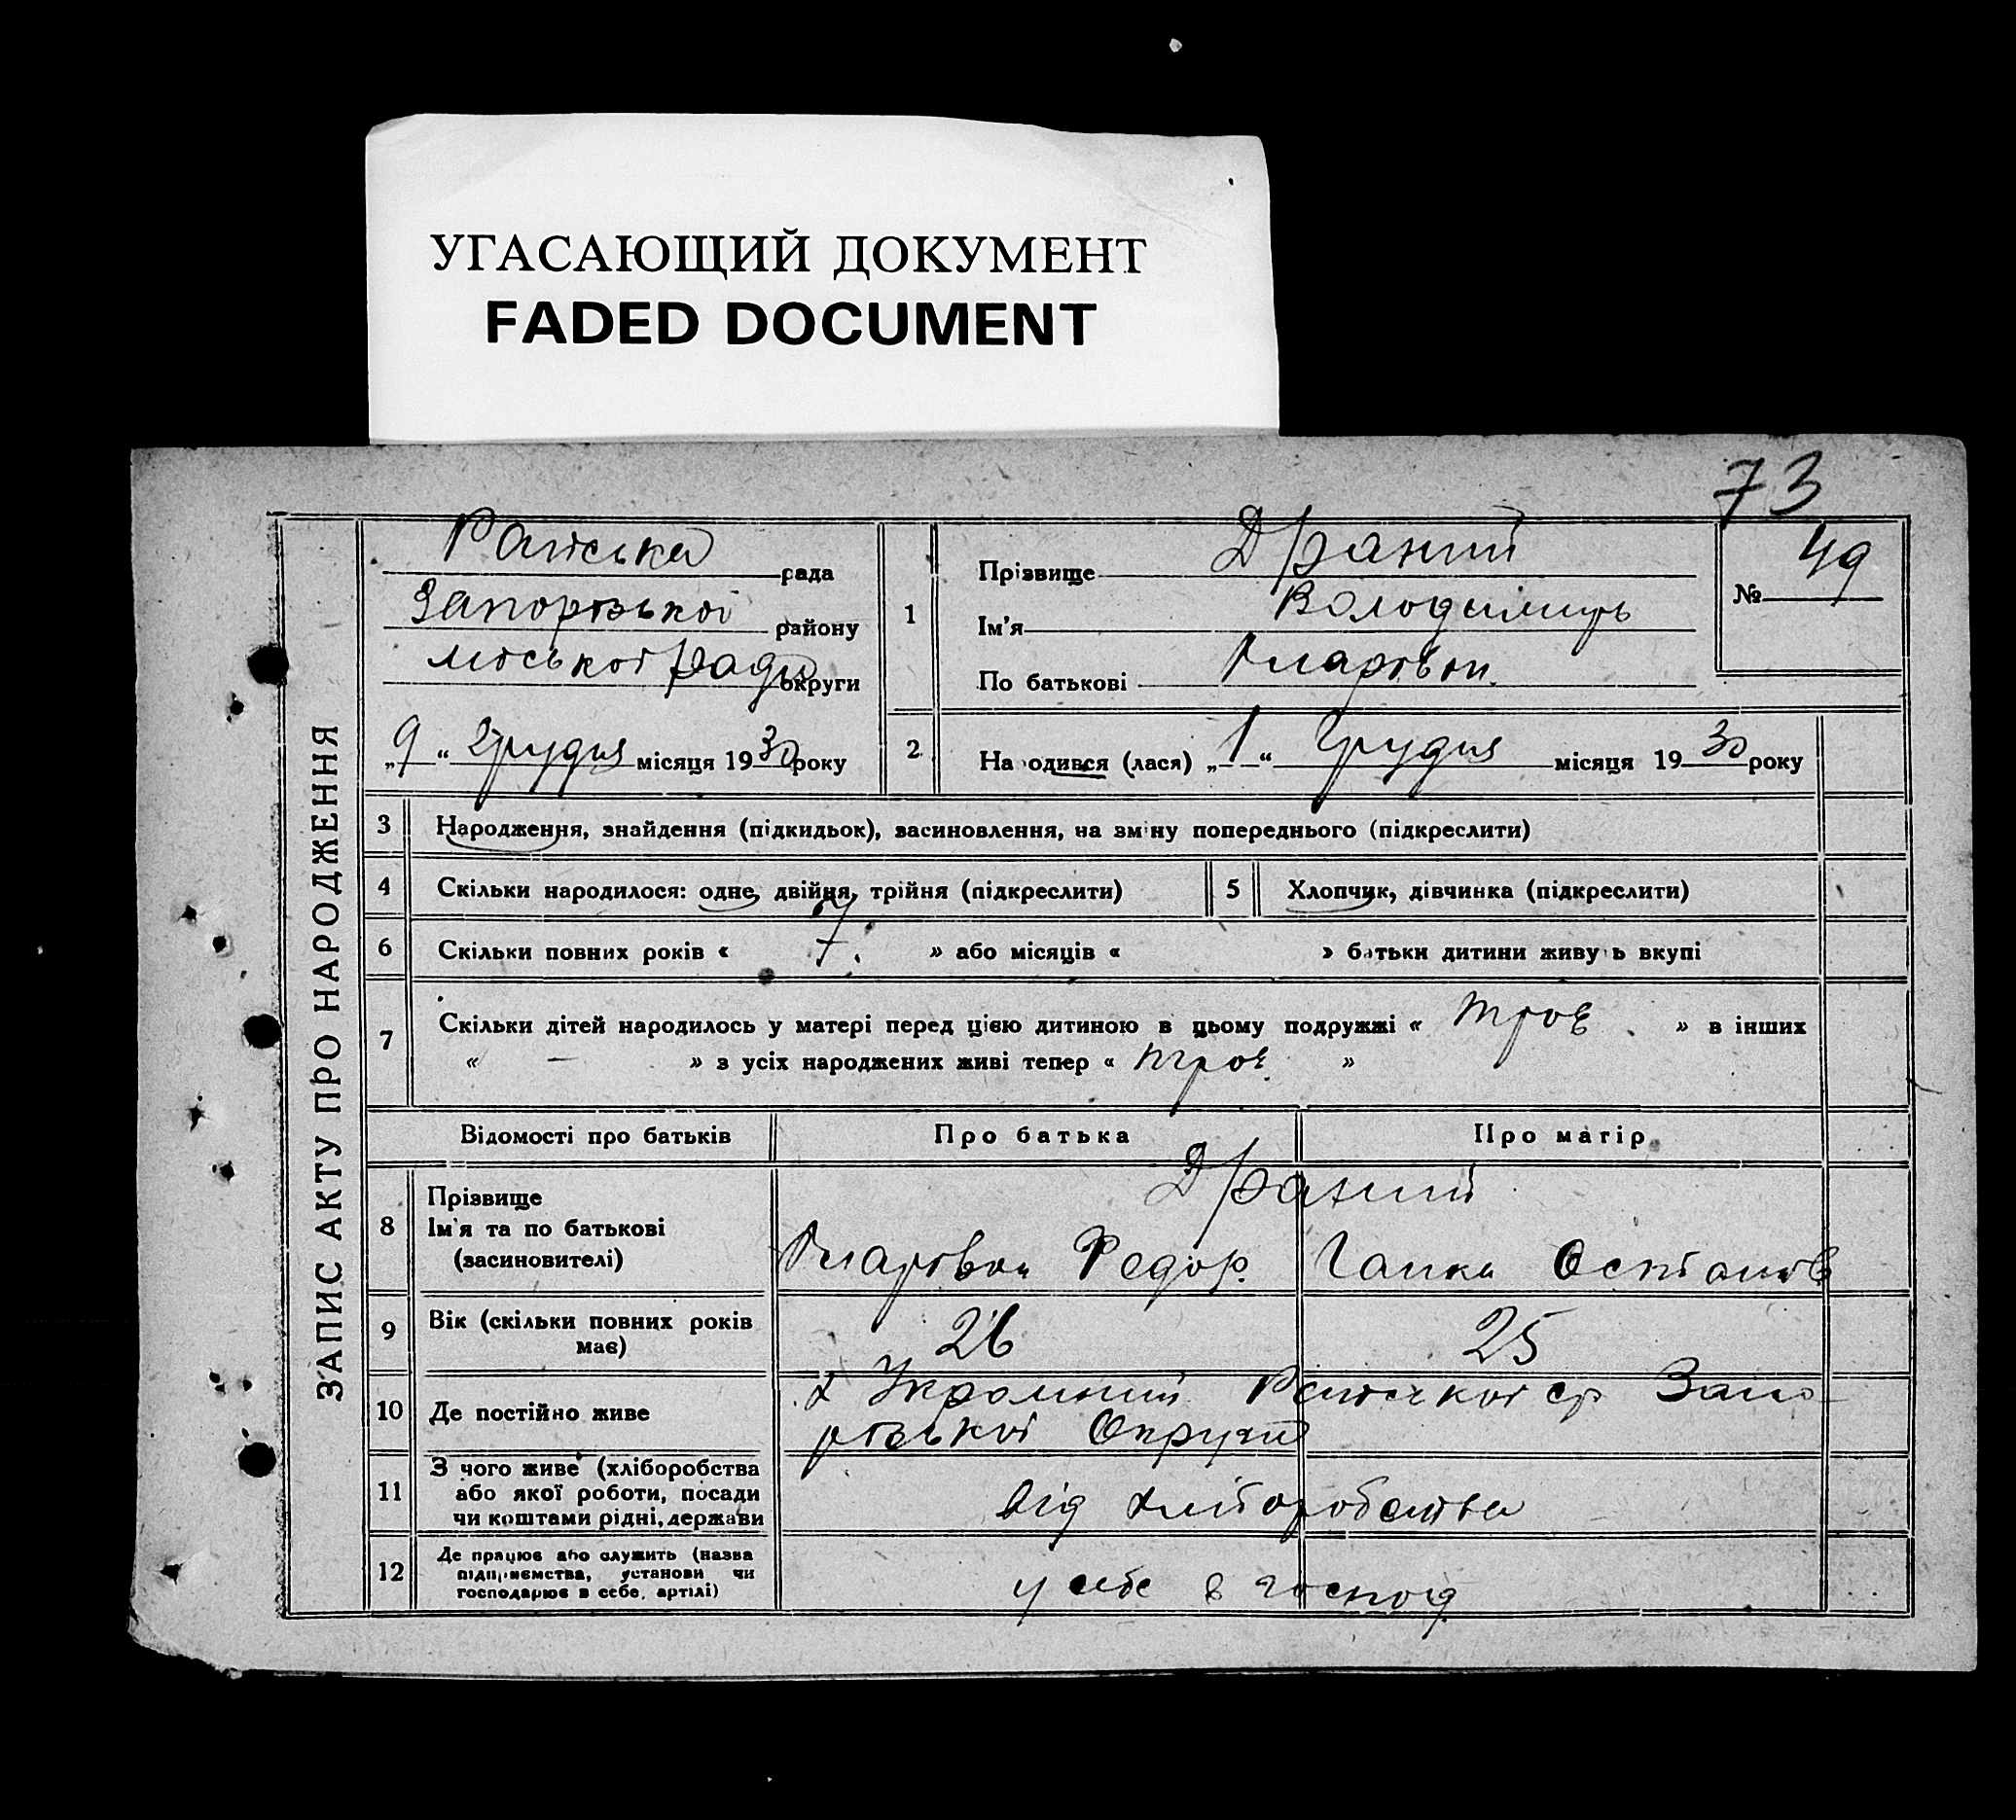 УГАСАЮЩИЙ ДОКУМЕНТ
FADED DOCUMENT
73
ЗАПИС АКТУ ПРО НАРОДЖЕННЯ
рада
Запорізької району
міської ради округи
„9“ грудня місяця 1930 року
1
Прізвище Драний
Ім'я Володимир
По батькові
№ 49
2
Народився (лася) „1“ грудня місяця 1930 року
3 Народження, знайдення (підкидьок), засиновлення, на зміну попереднього (підкреслити)
4 Скільки народилося: одне, двійня, трійня (підкреслити)
5 Хлопчик, дівчинка (підкреслити)
6 Скільки повних років « 7. » або місяців « » батьки дитини живуть вкупі
7 Скільки дітей народилось у матері перед цією дитиною в цьому подружжі « троє . » в інших
« — » з усіх народжених живі тепер « троє. »
Відомості про батьків
Про батька
Про матір
8 Прізвище
Ім'я та по батькові
(засиновителі)
Драний
Федор.
Ганна
9 Вік (скільки повних років
має)
26
25
10 Де постійно живе
х Запо-
різької Округи
11 З чого живе (хліборобства
або якої роботи, посади
чи коштами рідні, держави
від хліборобства
12 Де працює або служить (назва
підприємства, установи чи
господарює в себе, артілі)
у себе в господ